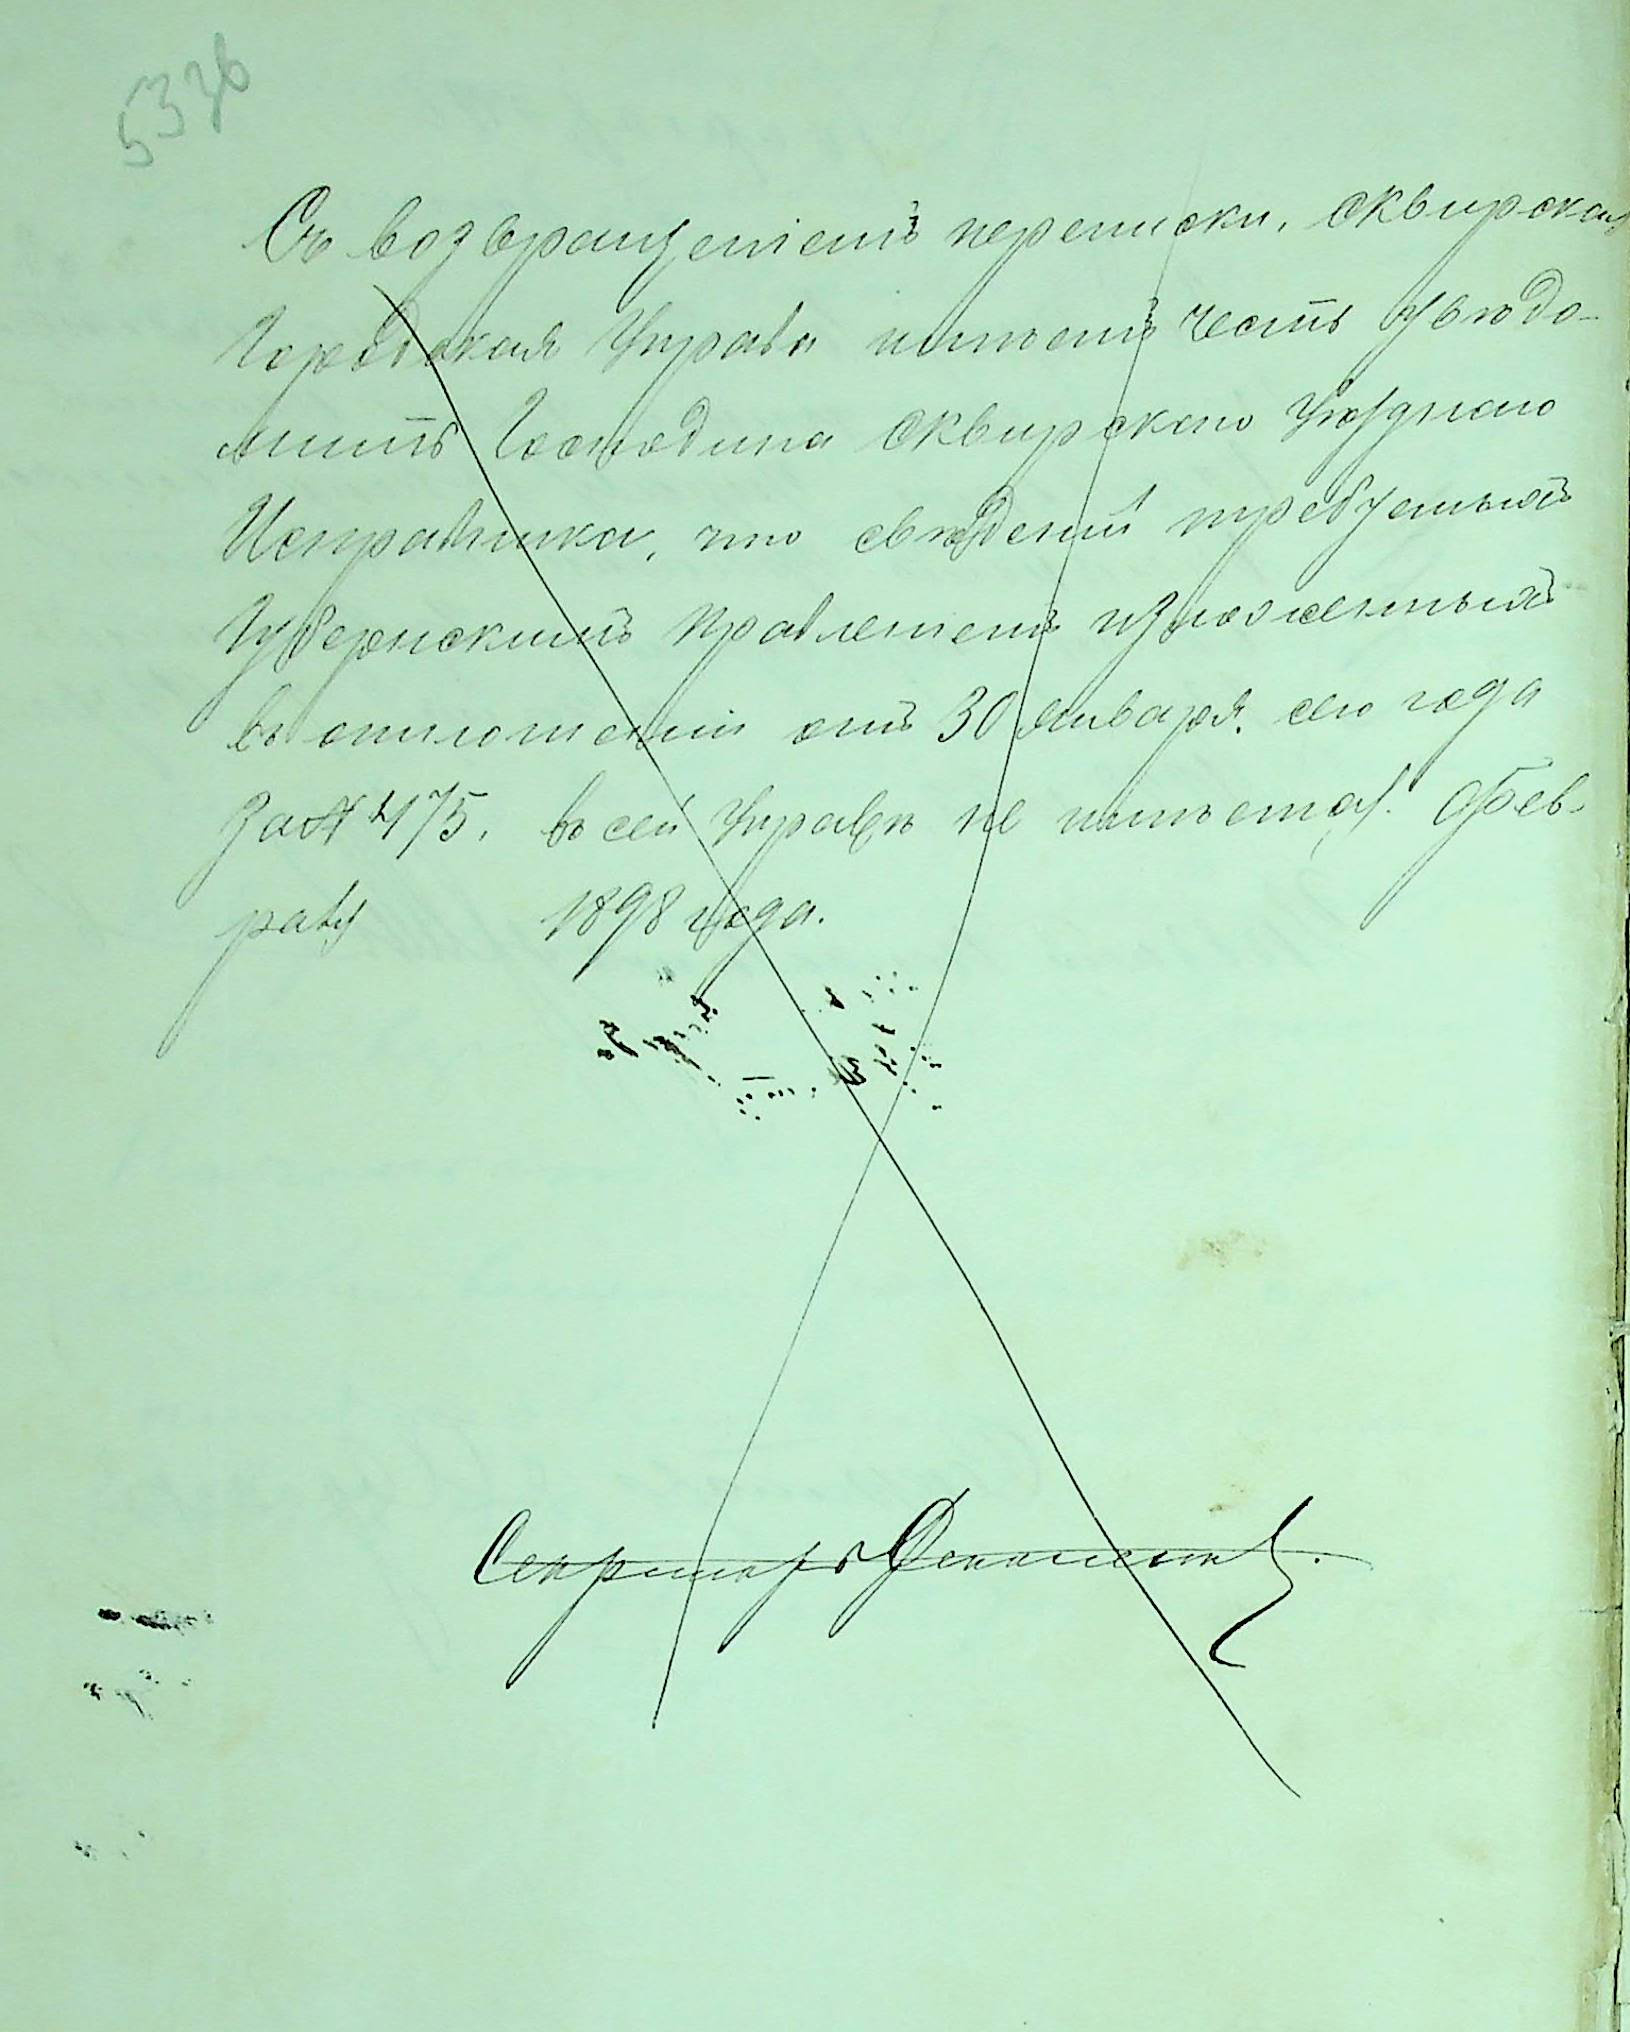 533б
Съ возвращеніемъ переписки, Сквирская
Городская Управа имѣетъ честь увѣдо-
мить Господина Сквирскаго Уѣзднаго
Исправника, что свѣдений требуемыхъ
Губернскимъ Правленіемъ изложенныхъ
въ отношеніи отъ 30 Января сего года
За № 475, въ сей Управѣ не имѣется. Фев-
раля 1898 года.
Секретарь